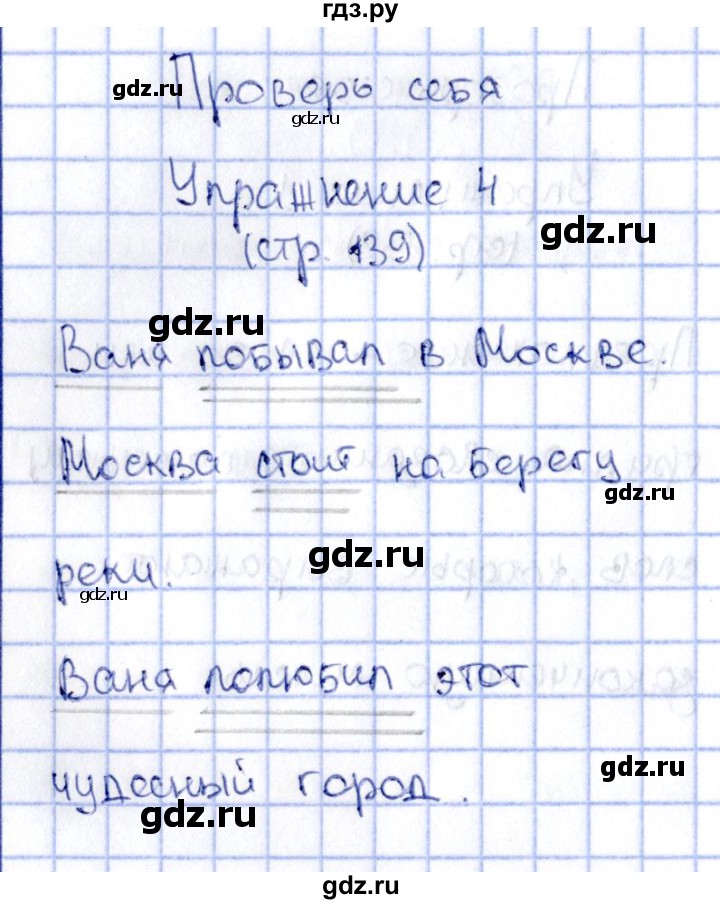 гдз.ру
Проверь себя
gdz.ru
gdz.ru
Упражнение 4
(стр. 139)
gdz.ru
gdz.ru
Ваня побывал в Москве.
Москва стоит на берегу
gdz.ru
gdz.ru
реки.
gdz.ru
Ваня полюбил этот
gdz.ru
чудесный город.
gdz.ru
gdz.ru